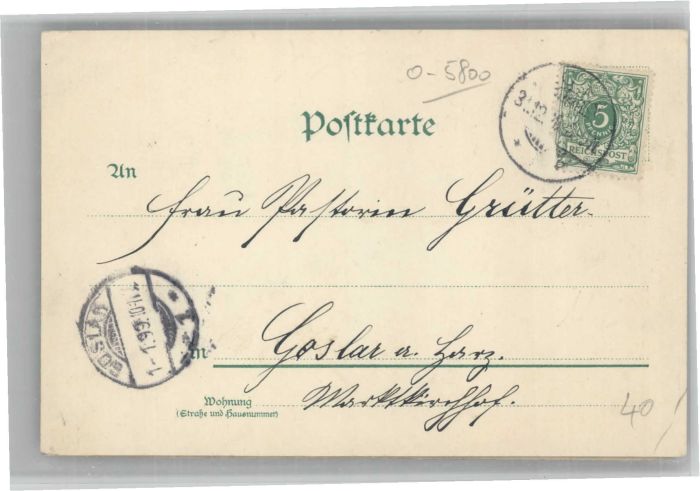 o-5800
Postkarte
31.12.
5
PFENNIG
REICHSPOST
An
Frau Pastorin Grütter.
GOSLAR
1.1.99.
* 1 *
in Goslar a. Harz.
Wohnung
(Straße und Hausnummer)
Marktkirchhof.
40